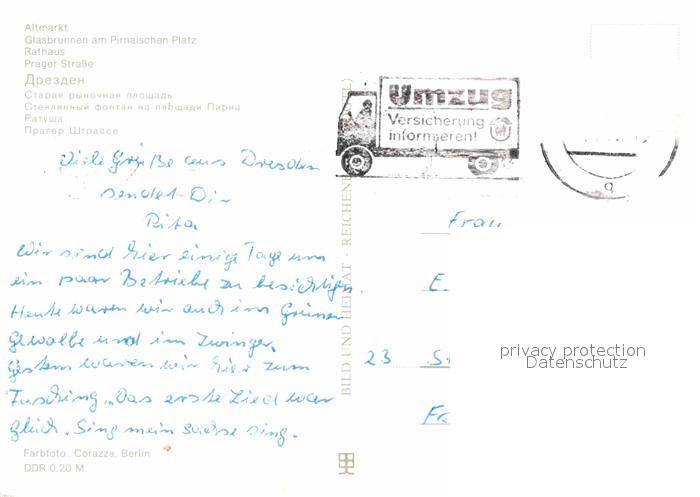 Altmarkt
Glasbrunnen am Pirnaischen Platz
Rathaus
Prager Straße
Дрезден
Старая рыночная площадь
Стеклянный фонтан на площади Пирна
Ратуша
Прагер Штрассе
Umzug
Versicherung
informieren!
Viele Grüße aus Dresden
sendet Dir
Rita
Wir sind hier einige Tage um
ein paar Betriebe zu besichtigen.
Heute waren wir auch im Grünen
Gewölbe und im Zwinger,
Gestern waren wir hier zum
Fasching. Das erste Lied war
glich. Sing mein Sachse sing.
Frau
E.
23 S
Fr
BILD UND HEIMAT · REICHEN
privacy protection
Datenschutz
Farbfoto: Corazza, Berlin
DDR 0,20 M